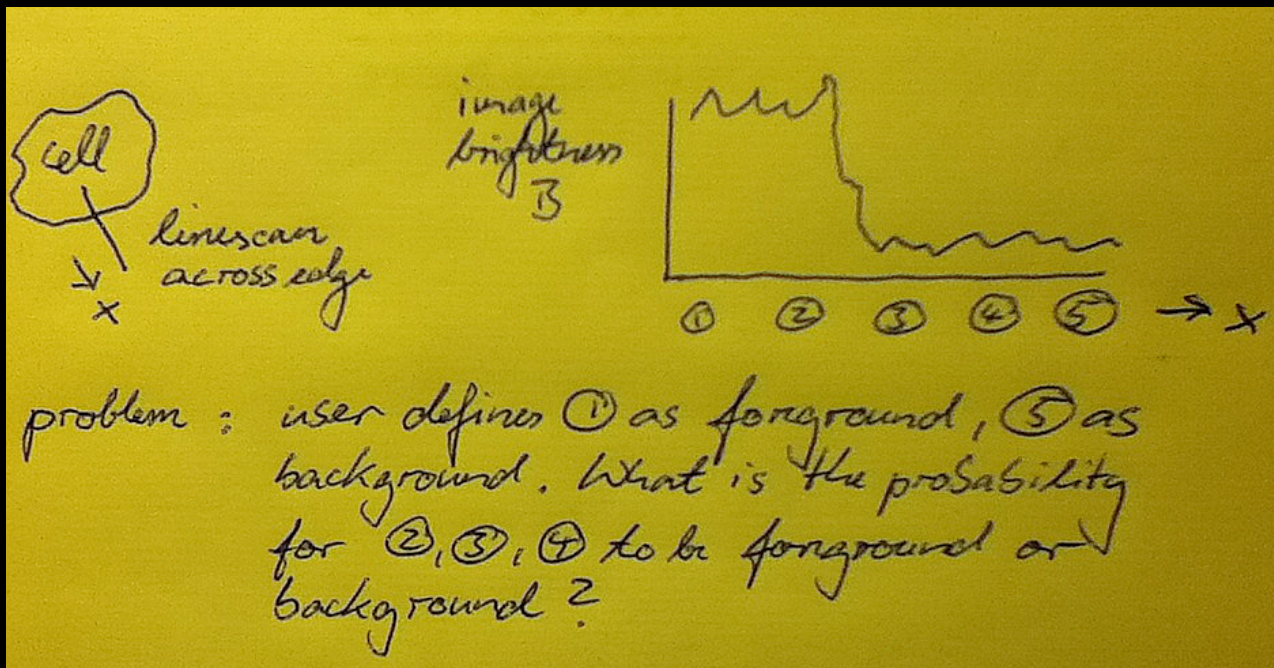 cell
linescan
across edge
x
image
brightness
B
① ② ③ ④ ⑤ → x
problem : user defines ① as forground, ⑤ as
background. What is the probability
for ②, ③, ④ to be forground or
background ?